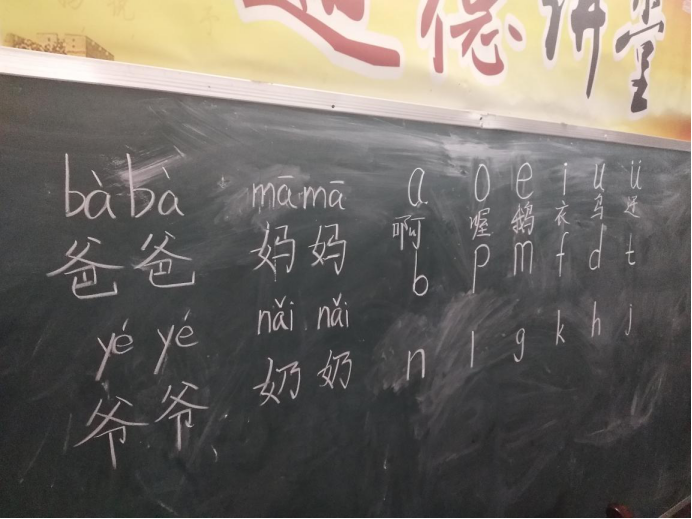 道德讲堂
bà bà māmā a o e i u ü
爸爸 妈妈 啊 喔 鹅 衣 乌 迂
b p m f d t
yé yé nǎi nǎi n l g k h j
爷爷 奶奶